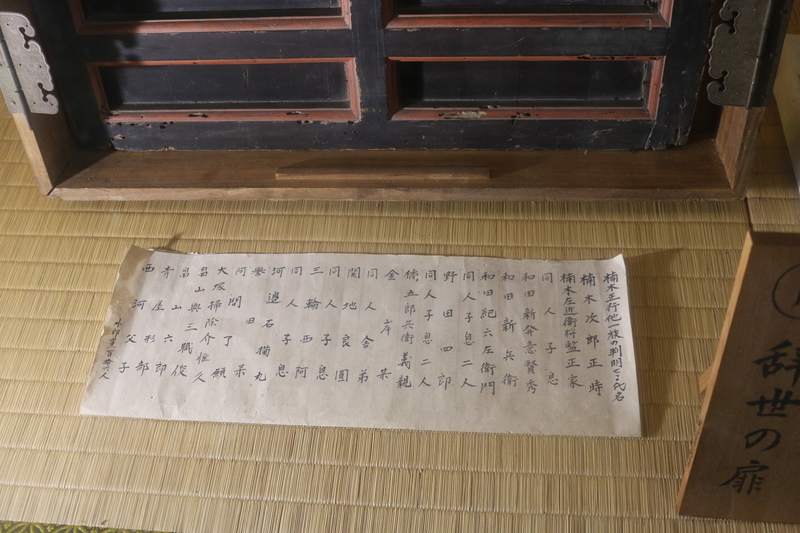 楠木正行他一族の判明せる氏名
楠木次郎正時
楠木左近衛将監正家
同人子息
和田新発意賢秀
和田新兵衛
和田紀六左衛門
同人子息二人
野田四郎
同人子息二人
楠五郎兵衛義親
金岸某
同人舎弟
関地良圓
同人子息
三輪西阿
同人子息
河邉石掬丸
譽田某
阿間了願
大塚掃除介惟久
畠山與三職俊
畠山六郎
青屋刑部
西河父子
辞世の扉